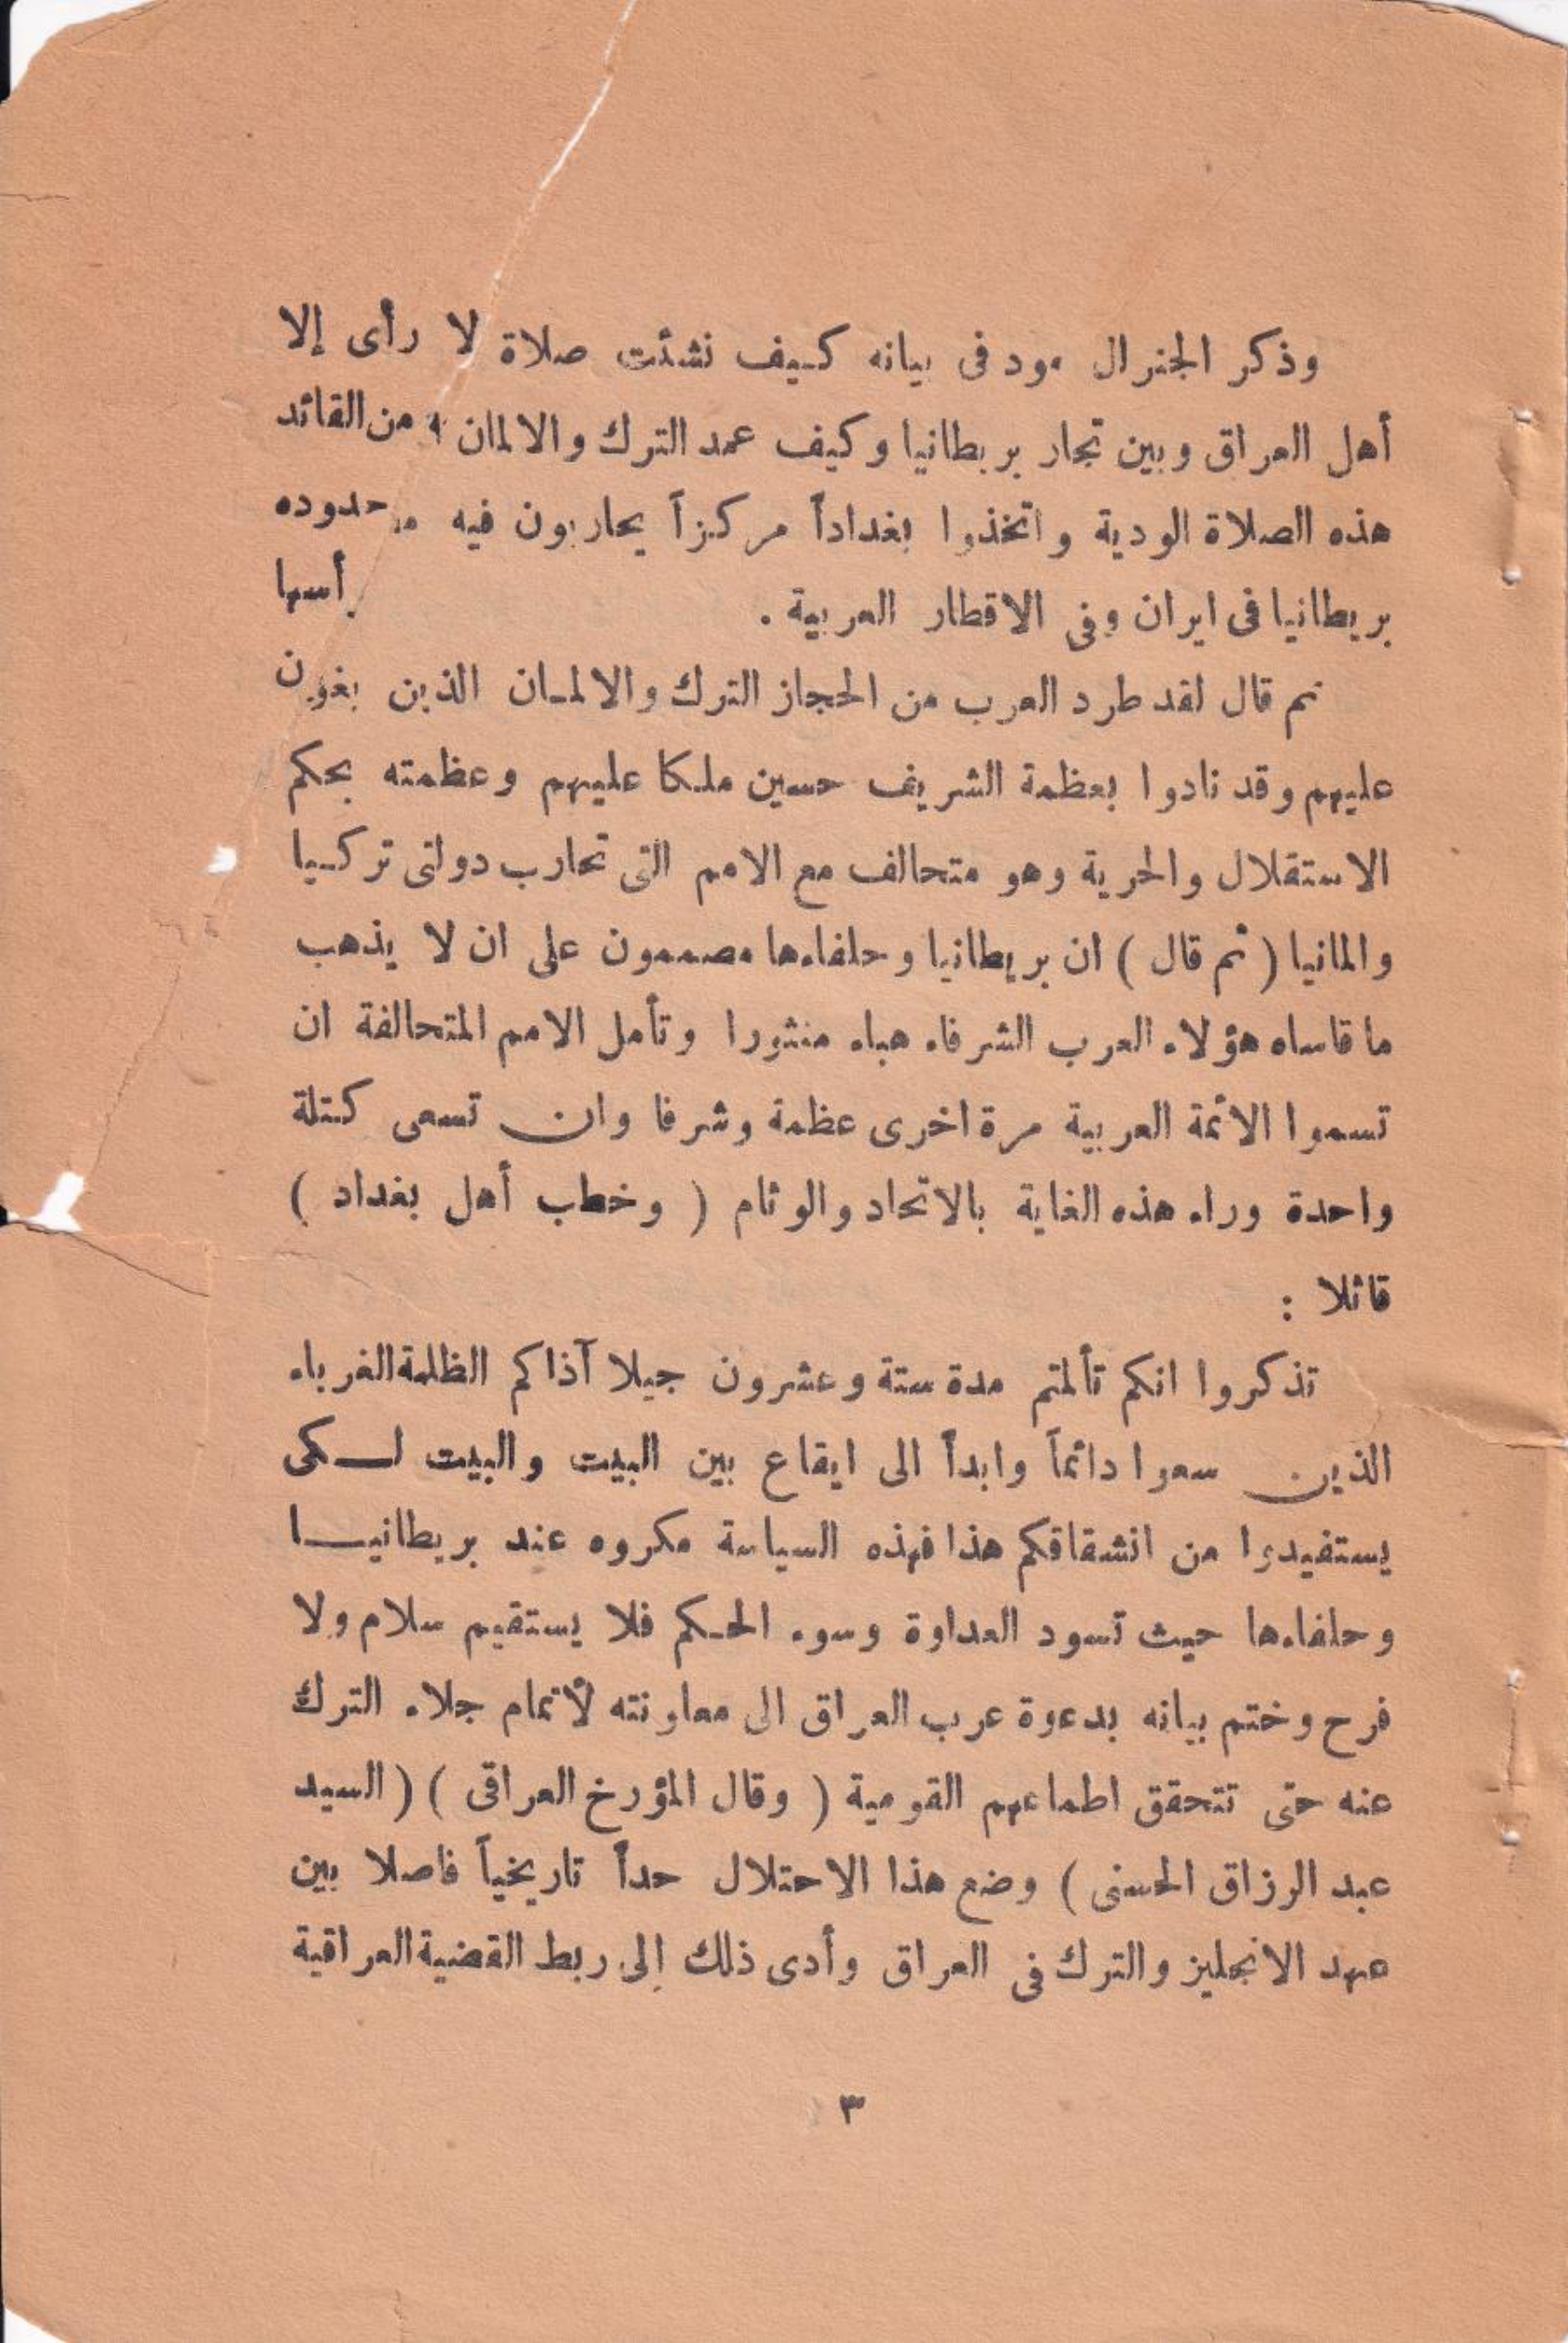 وذكر الجنرال مود فى بيانه كيف نشئت صلاة لا رأى إلا
أهل العراق وبين تجار بريطانيا وكيف عمد الترك والالمان من القائد
هذه الصلاة الودية واتخذوا بغداداً مركزاً يحاربون فيه حدوده
بريطانيا فى ايران وفى الاقطار العربية . أسها
ثم قال لقد طرد العرب من الحجاز الترك والالمان الذين بغون
عليهم وقد نادوا بعظمة الشريف حسين ملكا عليهم وعظمته بحكم
الاستقلال والحرية وهو متحالف مع الامم التى تحارب دولتى تركيا
والمانيا ( ثم قال ) ان بريطانيا وحلفاءها مصممون على ان لا يذهب
ما قاساه هؤلاء العرب الشرفاء هباء منثورا وتأمل الامم المتحالفة ان
تسموا الائمة العربية مرة اخرى عظمة وشرفا وان تسعى كتلة
واحدة وراء هذه الغاية بالاتحاد والوئام ( وخطب أهل بغداد )
قائلا :
تذكروا انكم تألمتم مدة ستة وعشرون جيلا آذاكم الظلمة الغرباء
الذين سعوا دائماً وابداً الى ايقاع بين البيت والبيت لكى
يستفيدوا من انشقاقكم هذا فهذه السياسة مكروه عند بريطانيا
وحلفاءها حيث تسود العداوة وسوء الحكم فلا يستقيم سلام ولا
فرح وختم بيانه بدعوة عرب العراق الى معاونته لأتمام جلاء الترك
عنه حتى تتحقق اطماعهم القومية ( وقال المؤرخ العراقى ) ( السيد
عبد الرزاق الحسنى ) وضع هذا الاحتلال حداً تاريخياً فاصلا بين
عهد الانجليز والترك فى العراق وأدى ذلك إلى ربط القضية العراقية
٣